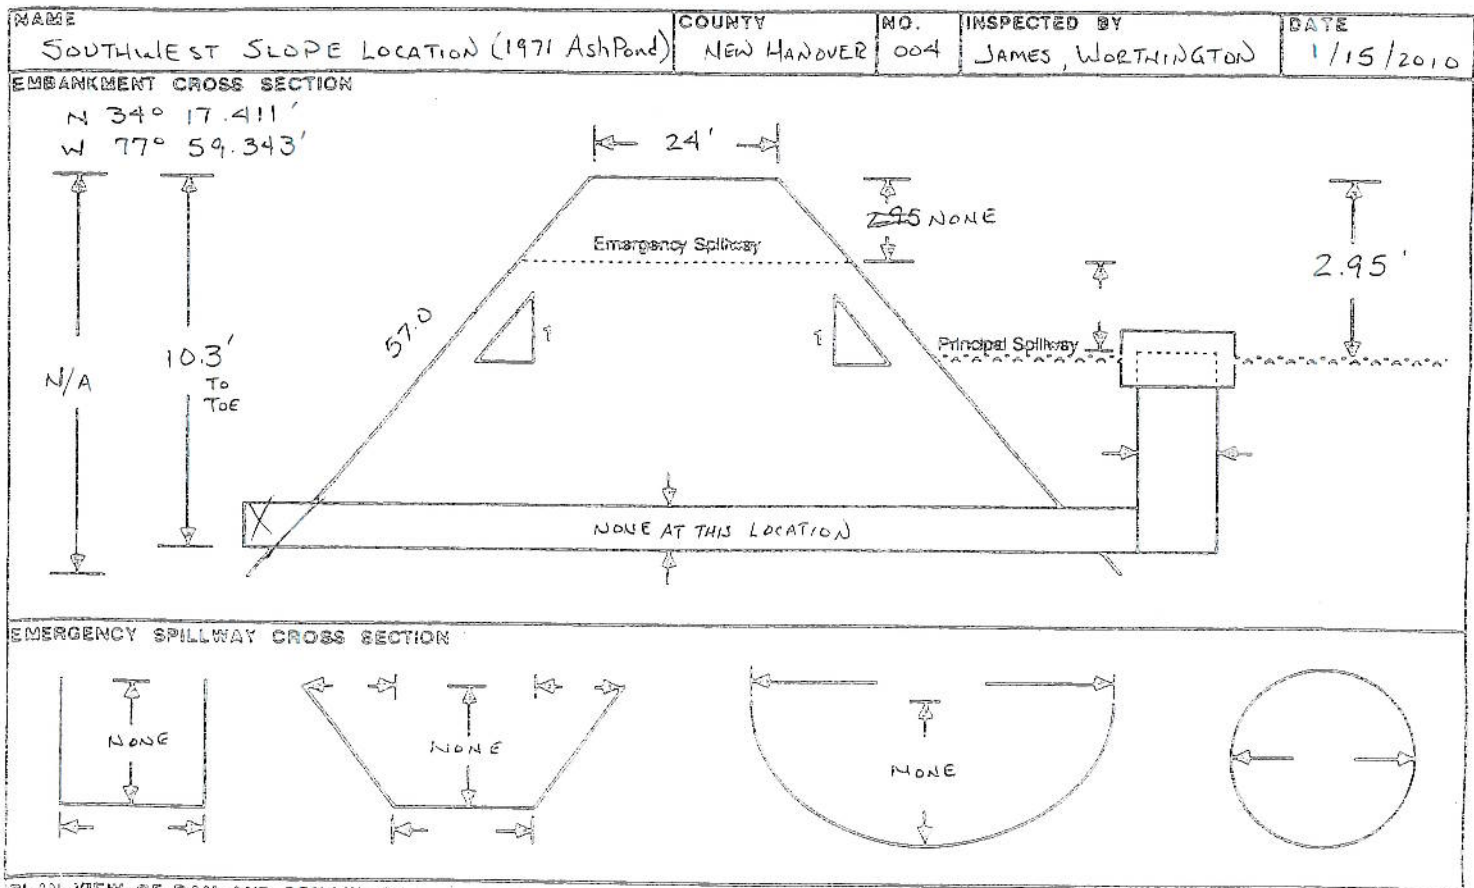 NAME
SOUTHWEST SLOPE LOCATION (1971 Ash Pond)
COUNTY
NEW HANOVER
NO.
004
INSPECTED BY
JAMES, WORTHINGTON
DATE
1/15/2010
EMBANKMENT CROSS SECTION
N 34° 17.411'
W 77° 59.343'
24'
2.95 NONE
Emergency Spillway
2.95'
57.0
1
1
Principal Spillway
N/A
10.3'
TO
TOE
X
NONE AT THIS LOCATION
EMERGENCY SPILLWAY CROSS SECTION
NONE
NONE
NONE